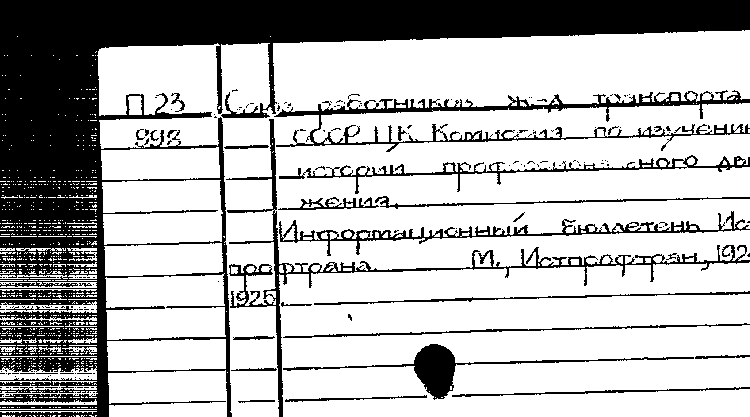 П.23 Союз работников ж-д транспорта
998 СССР. ЦК. Комиссия по изучению
истории профессионального дви
жения.
Информационный бюллетень Ист
профтрана. М., Истпрофтран, 192
1925.